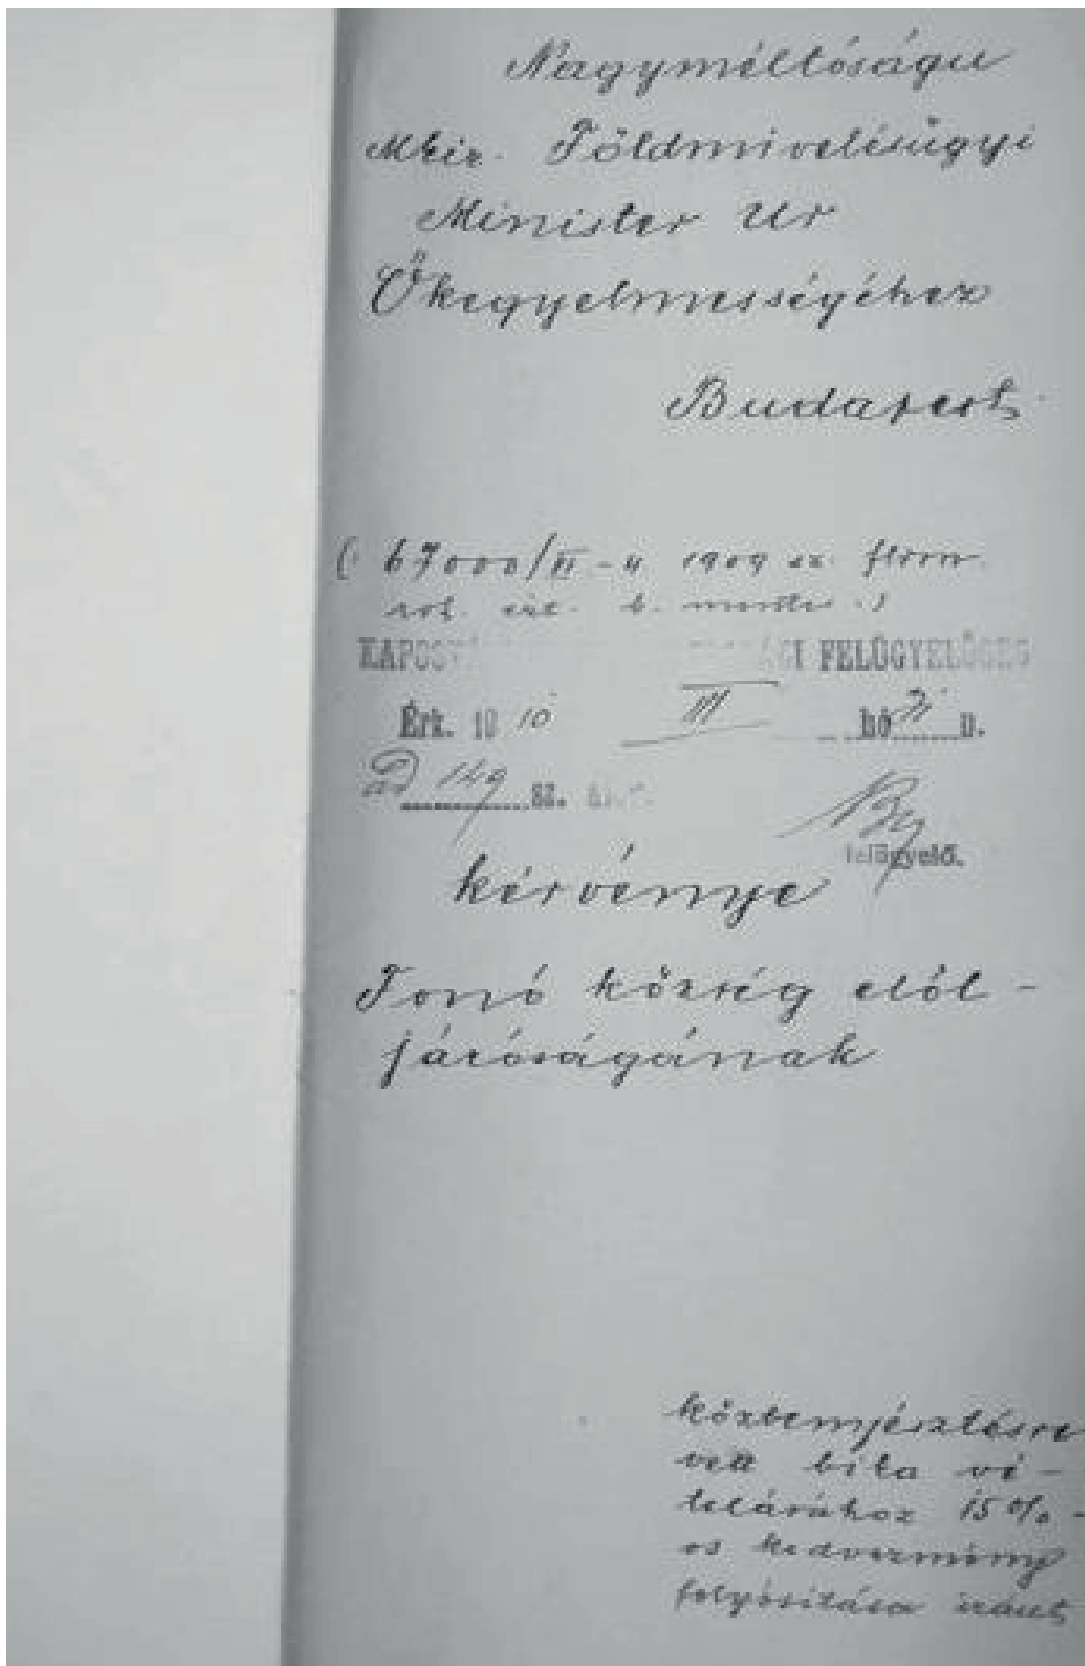 Nagyméltóságu
Mkir. Földmivelésügyi
Minister Ur
Őkegyelmességéhez
Budapest
67000/ 1909 sz.
KAPOS FELÜGYELŐSÉG
Érk. 19 10 III hó n.
ad 149 sz.
felügyelő.
kérvénye
Fonó község elől-
járóságának
köztenyésztésre
vett bika vé-
telárához 15%-
os kedvezmény
folyósitása iránt